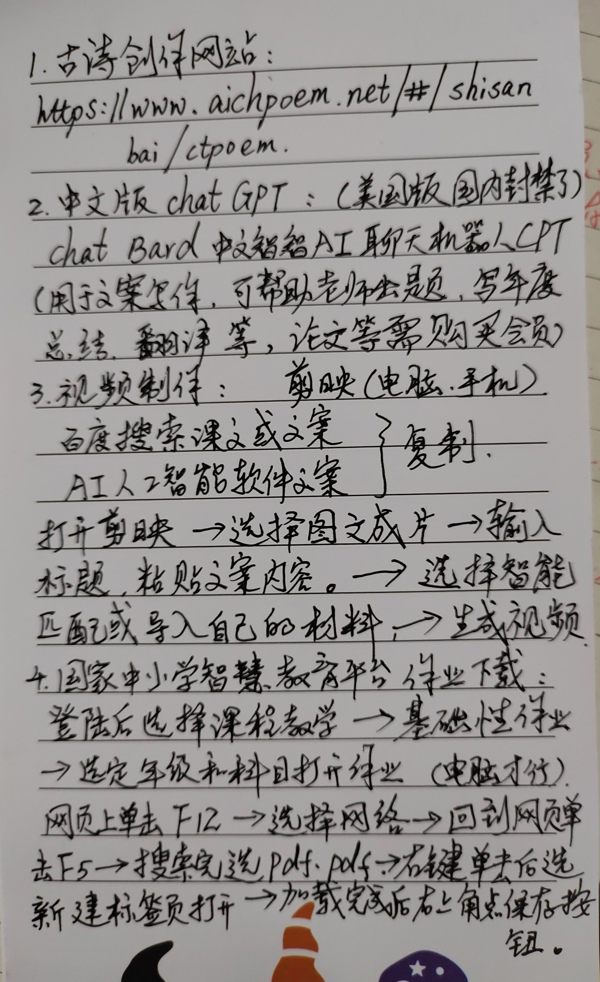 1. 古诗创作网站：
https://www.aichpoem.net/#/shisan
bai/ctpoem.
2. 中文版 chat GPT：（美国版国内封禁了）
chat Bard 中文智智AI聊天机器人CPT
（用于文案写作，可帮助老师出题，写年度
总结、翻译等，论文等需购买会员）
3. 视频制作： 剪映（电脑、手机）
百度搜索课文或文案
AI人工智能软件文案 } 复制.
打开剪映→选择图文成片→输入
标题，粘贴文案内容。→选择智能
匹配或导入自己的材料，→生成视频.
4. 国家中小学智慧教育平台作业下载：
登陆后选择课程教学→基础性作业
→选定年级和科目打开作业（电脑才行）.
网页上单击F12→选择网络→回到网页单
击F5→搜索完选pdf.pdf→右键单击后选
新建标签页打开→加载完成后右上角点保存按
钮。